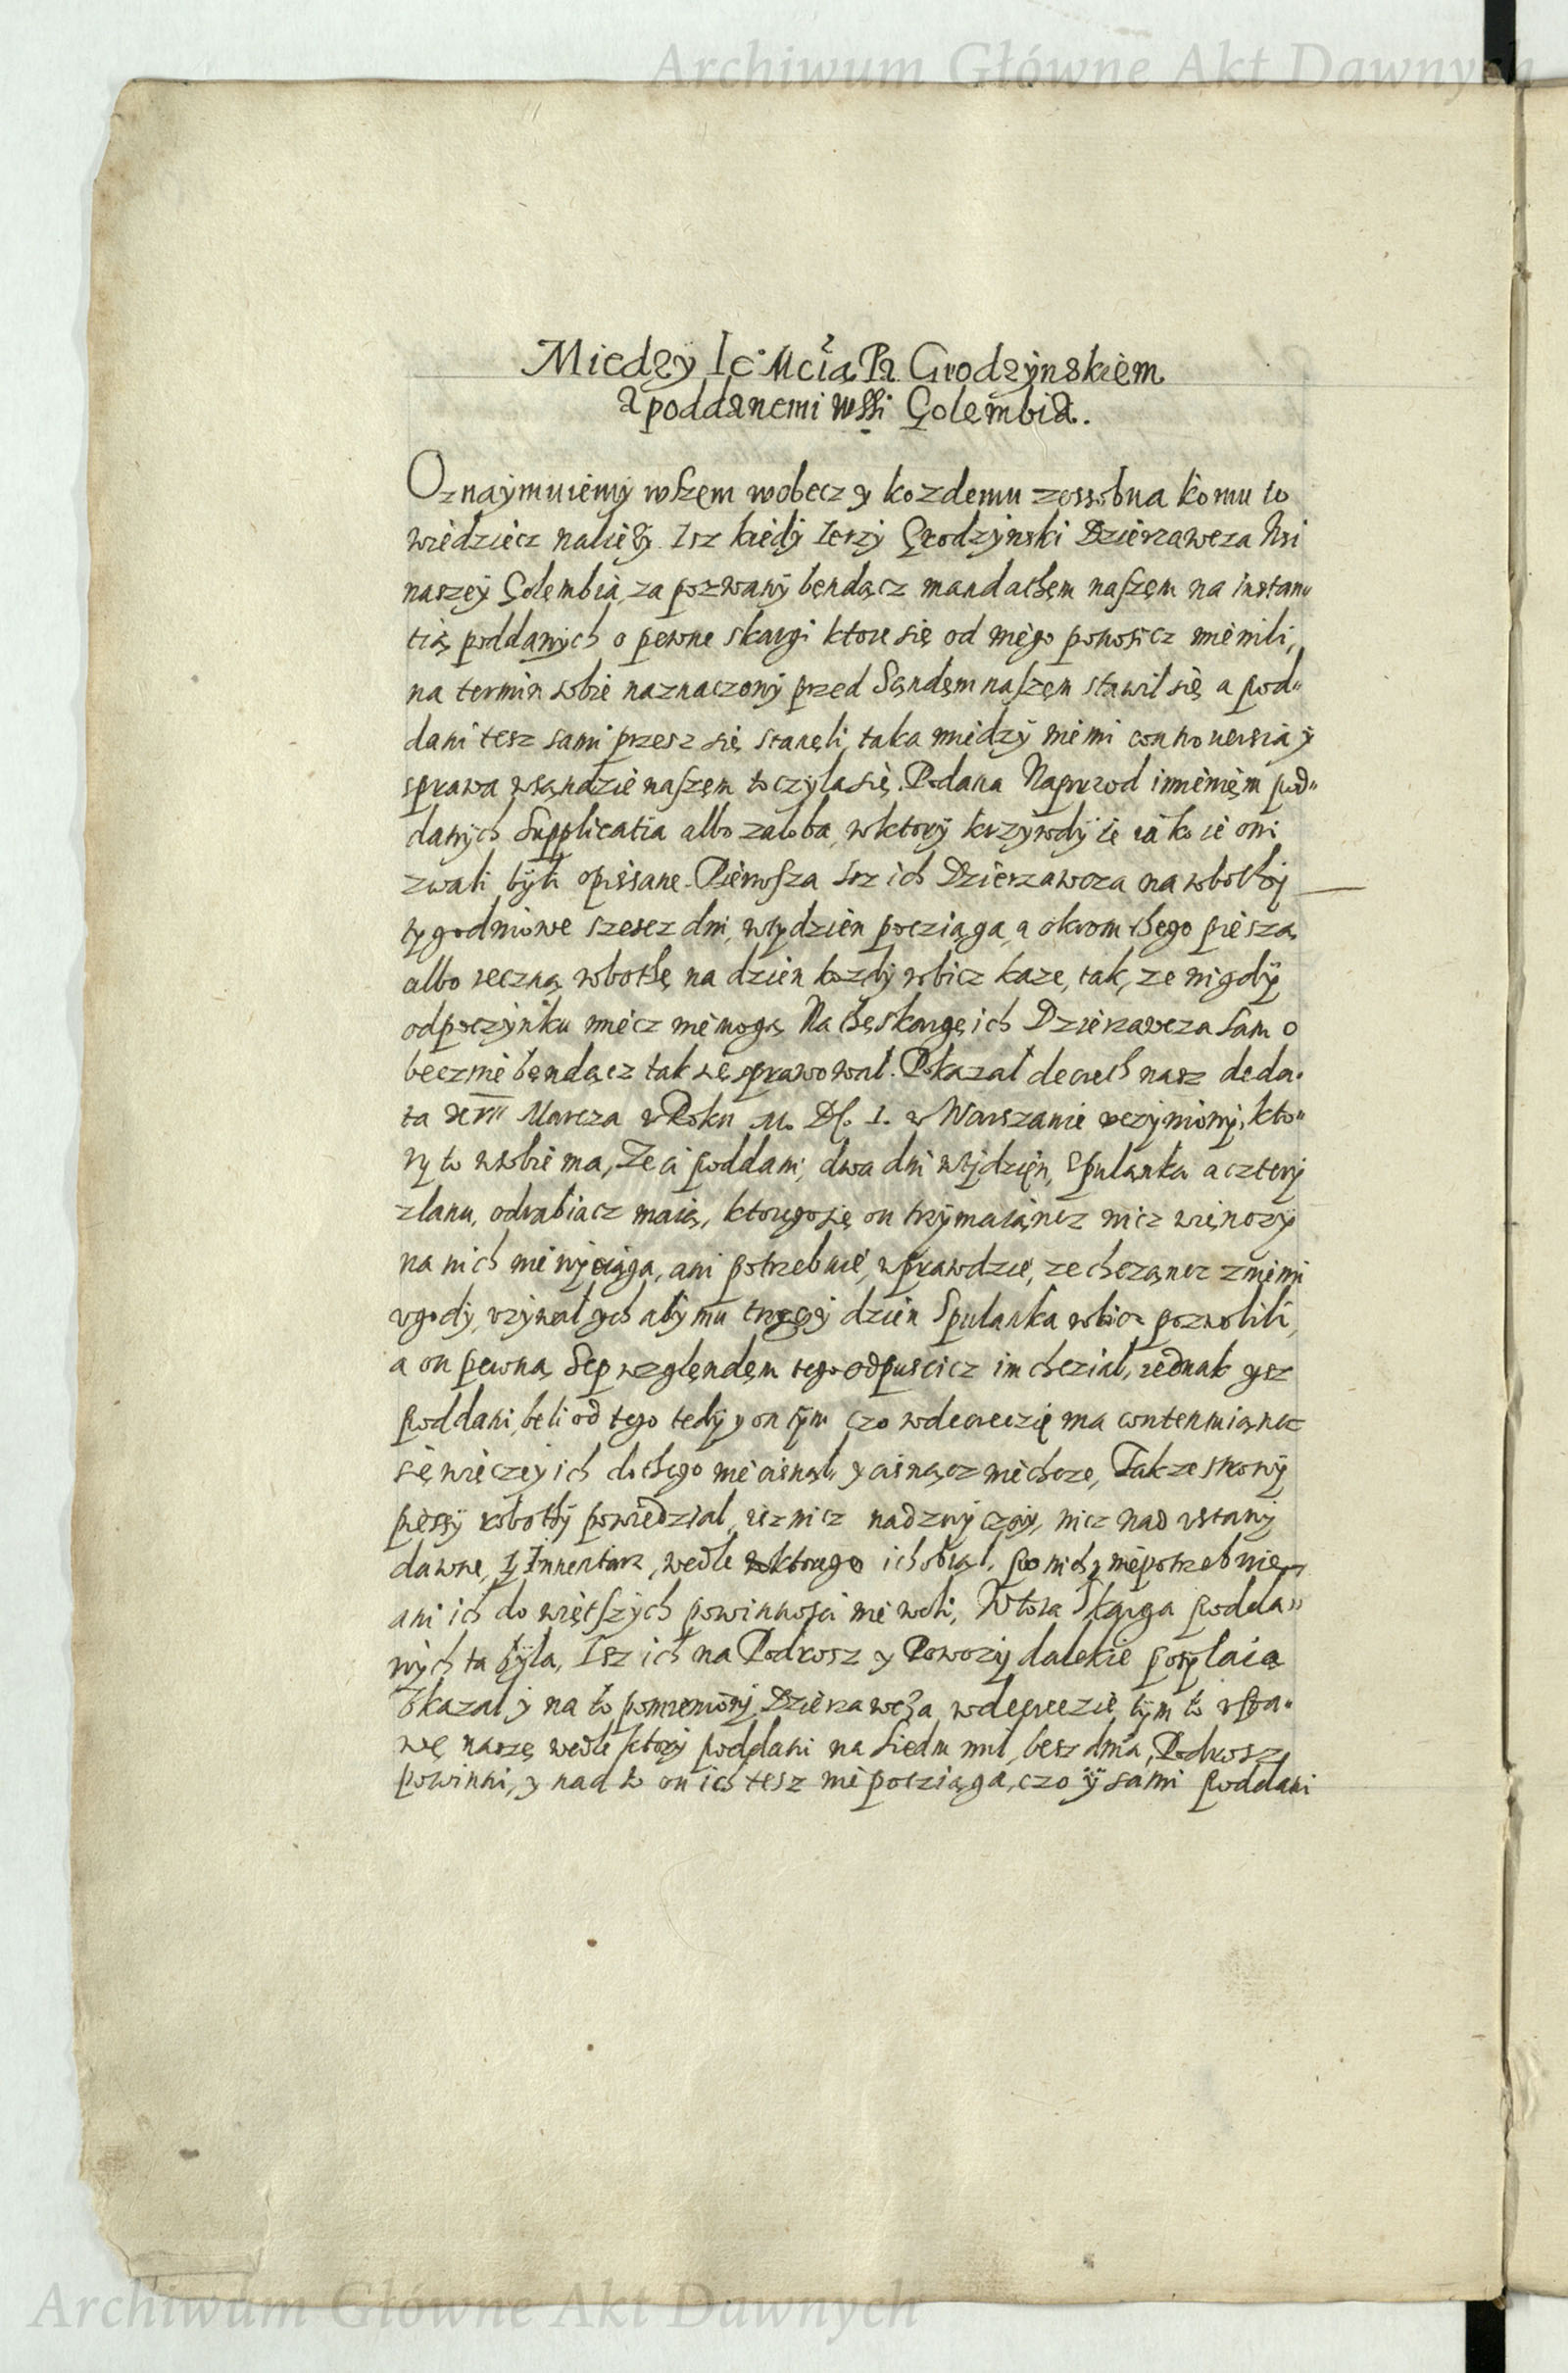 Archiwum Główne Akt Dawnych
Między Ie° Mcią Pą Grodzynskiem
a poddanemi wssi Golembia.
Oznaymuiemy wszem wobecz y kozdemu zossobna komu to
wiedziecz nalieży. Isz kiedy Ierzy Grodzynski Dzierzawcza Wsi
naszey Golembia, zapozwany bendącz mandathem naszem na instan„
tią poddanych o pewne skargi ktore się od niego ponosicz mienili,
na termin sobie naznaczony przed Sądem naszem stawil się a pod„
dani tesz sami przesz się stanęli, taka miedzy niemi controuersia y
sprawa w sąndzie naszem toczyla się. Podana Naprzod imieniem pod„
danych Supplicatia albo zaloba, w ktory krzywdy ie iako ie oni
zwali byli opissane. Pierwsza Isz ich Dzierzawcza na robothy
tygodniowe szescz dni, w tydzien pocziąga, a okrom thego pieszą
albo reczną robothę na dzien kozdy robicz kaze, tak, ze nigdy
odpoczynku miecz niemogą. Na thę skargę ich Dzierzawcza sam o
becznie bendącz tak się sprawowal. Pokazal decreth nasz de da„
ta XXVII Marcza w Roku M. DC. I. w Warszawie uczyniony, kto„
ry to w sobie ma, Ze ci poddani, dwa dni w tydzien, s pulanka a cztery
z lanu, odrabiacz maią, ktorego się on trzymaiąncz nicz więnczy
na nich nie wyciąga, ani potrzebuie, w prawdzie, ze chcząncz z niemi
ugody, uzywal ych aby mu trzeci dzien s pulanka robicz pozwolili,
a on pewną Sep względem tego odpuscicz im chczial, iednak ysz
poddani beli od tego tedy y on tym czo w decreczię ma contentuiąncz
się wieczey ich do thego nie cisnąl y cisnącz niechcze, Takze strony
pieszy robothy powiedzial, isz nicz nadzwyczay, nicz nad ustawy
dawne, y Inuentarz, wedle ktorego ich obią́l, po nich niepotrzebuie
ani ich do więtszych powinnosci nie woli, Wtora Skarga podda„
nych ta byla, Isz ich na Podrosz y Powozy dalekie posylaią
Okazal y na to pomieniony Dzierzawcza w decreczie tym to usta„
wę naszę wedle ktory poddani na siedm mil besz dnia Podrosz
powinni, y nad to on ich tesz nie pocziąga, czo y sami poddani
Archiwum Główne Akt Dawnych